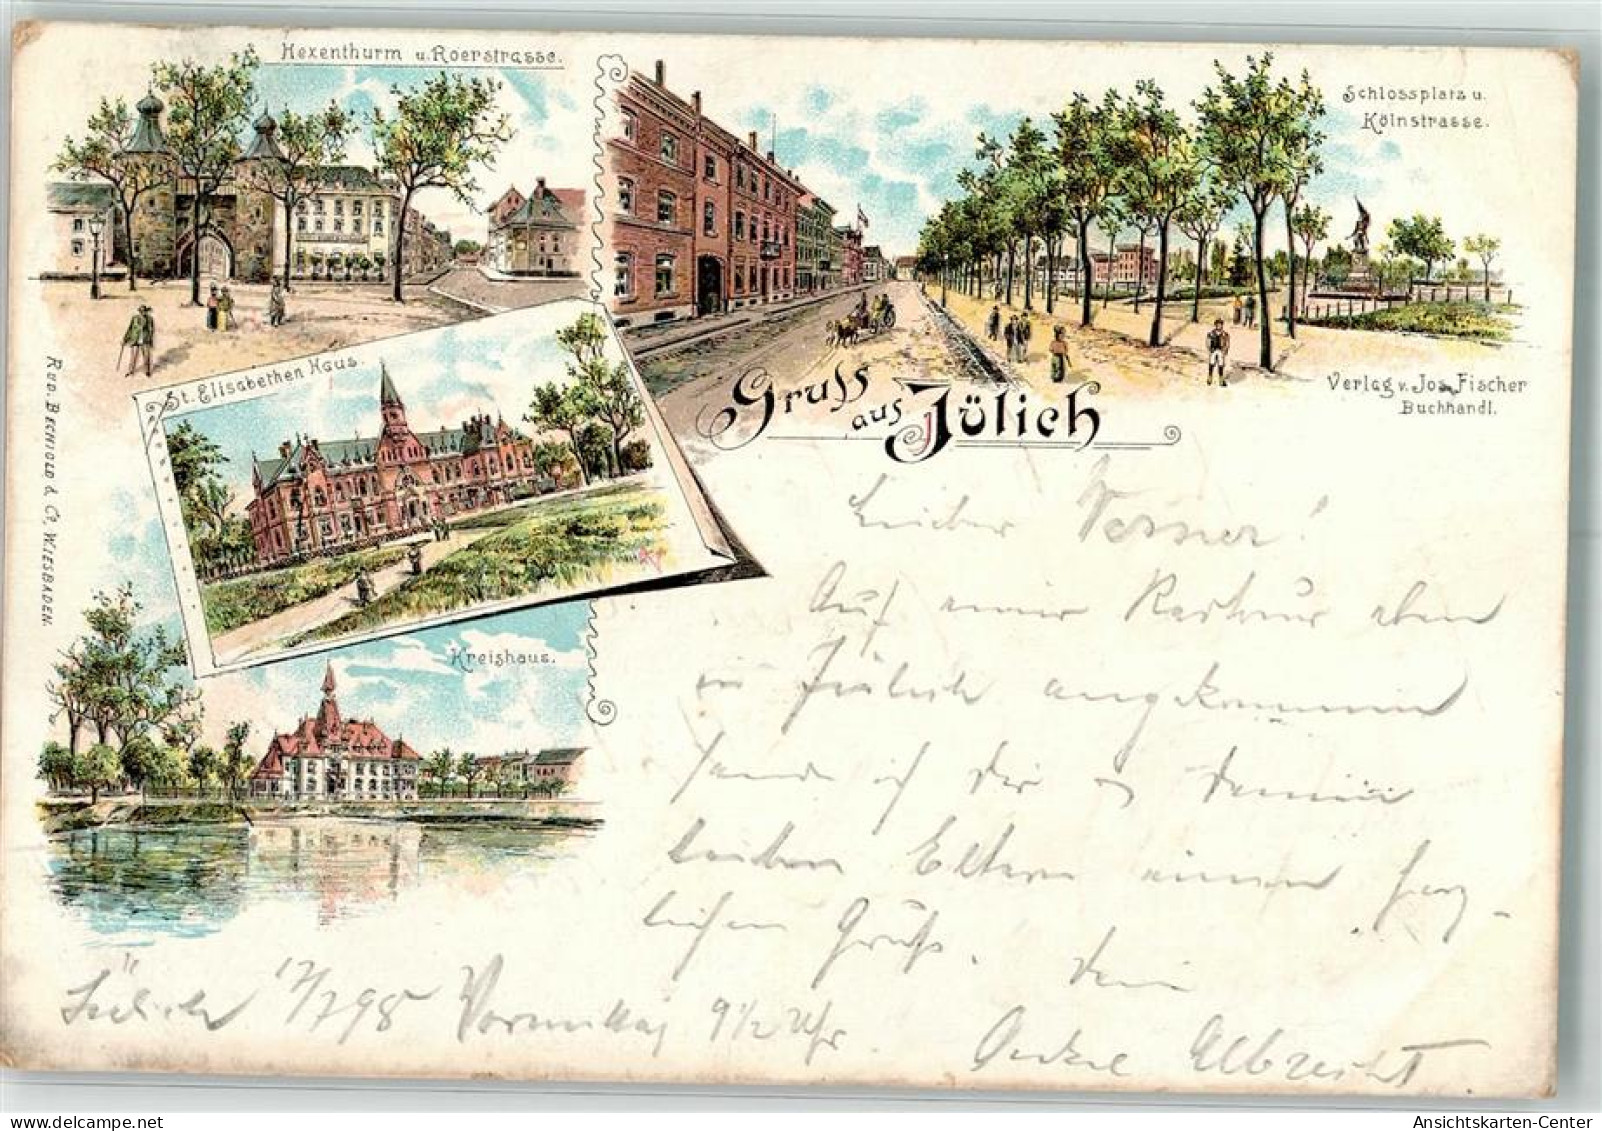 Hexenthurm u. Roerstrasse.
Schlossplatz u.
Kölnstrasse.
St. Elisabethen Haus.
Verlag v. Jos. Fischer
Buchhandl.
Gruss
aus Jülich
Kreishaus.
RUD. BECHTOLD & Co, WIESBADEN.
Lieber Werner!
Auf einer Radtour eben
in Jülich angekommen
sende ich Dir u Deinen
lieben Eltern einen herz-
lichen Gruß. Dein
Onkel Albrecht
Jülich 17/7 98 Vormittag 9 1/2 Uhr
Ansichtskarten-Center